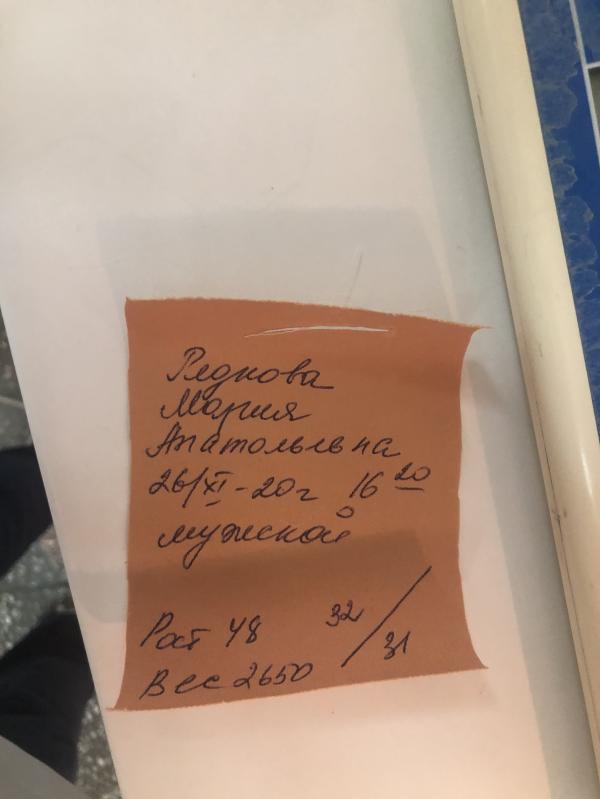 Редкова
Мария
Анатольевна
26/XI-20г 16 20
мужской
Рост 48 32/31
Вес 2650